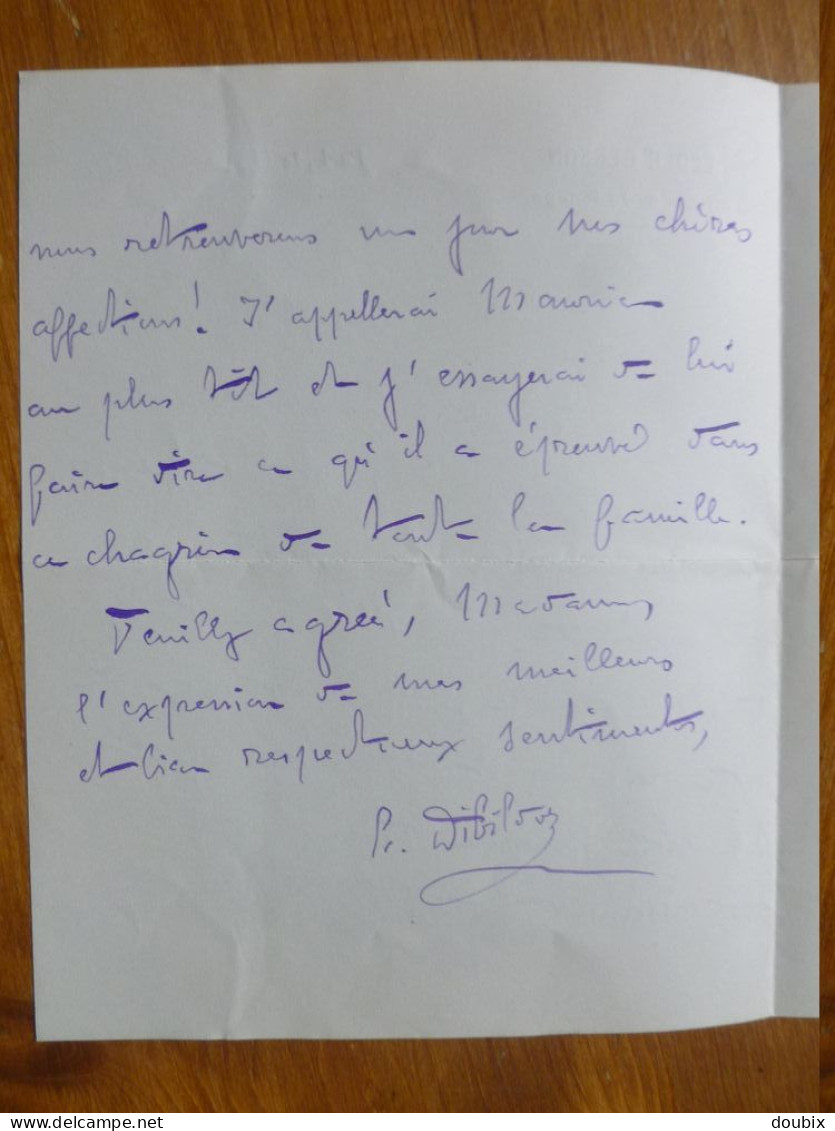 nous retrouverons un jour nos chères
affections! J'appellerai Maurice
au plus tôt et j'essayerai de lui
faire dire ce qu'il a éprouvé dans
ce chagrin de toute la famille.
Veuillez agréer, Madame,
l'expression de mes meilleurs
et bien respectueux sentiments,
doubix